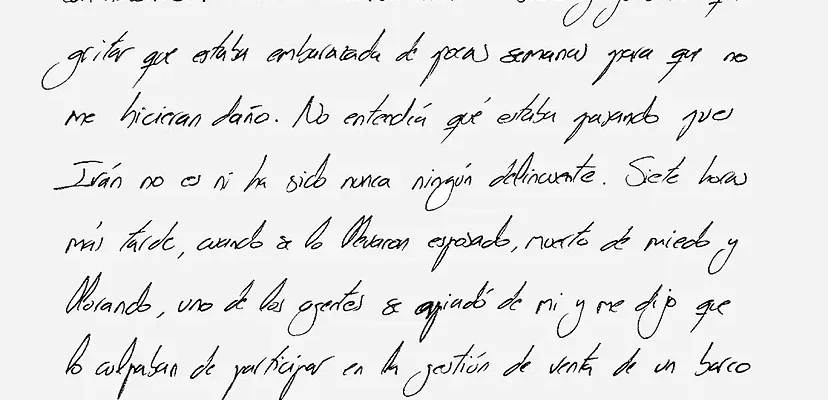 gritar que estaba embarazada de pocas semanas para que no
me hicieran daño. No entendía qué estaba pasando pues
Irán no es ni ha sido nunca ningún delincuente. Siete horas
más tarde, cuando se lo llevaron esposado, muerto de miedo y
llorando, uno de los agentes se apiadó de mi y me dijo que
lo culpaban de participar en la gestión de venta de un barco